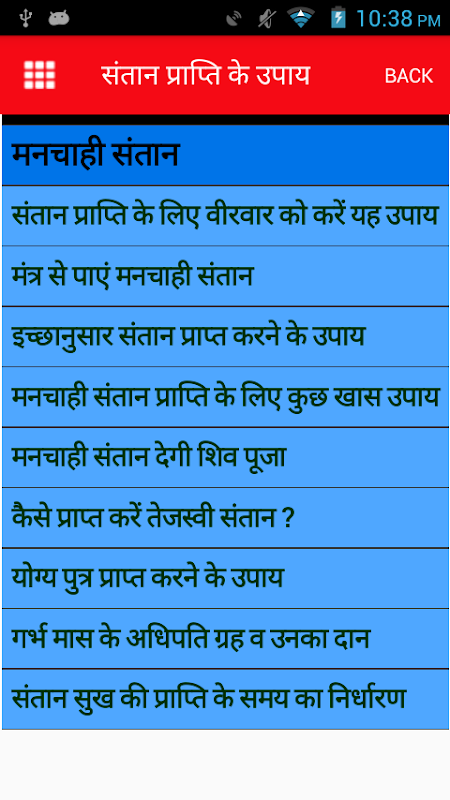 10:38 PM
संतान प्राप्ति के उपाय BACK
मनचाही संतान
संतान प्राप्ति के लिए वीरवार को करें यह उपाय
मंत्र से पाएं मनचाही संतान
इच्छानुसार संतान प्राप्त करने के उपाय
मनचाही संतान प्राप्ति के लिए कुछ खास उपाय
मनचाही संतान देगी शिव पूजा
कैसे प्राप्त करें तेजस्वी संतान ?
योग्य पुत्र प्राप्त करने के उपाय
गर्भ मास के अधिपति ग्रह व उनका दान
संतान सुख की प्राप्ति के समय का निर्धारण